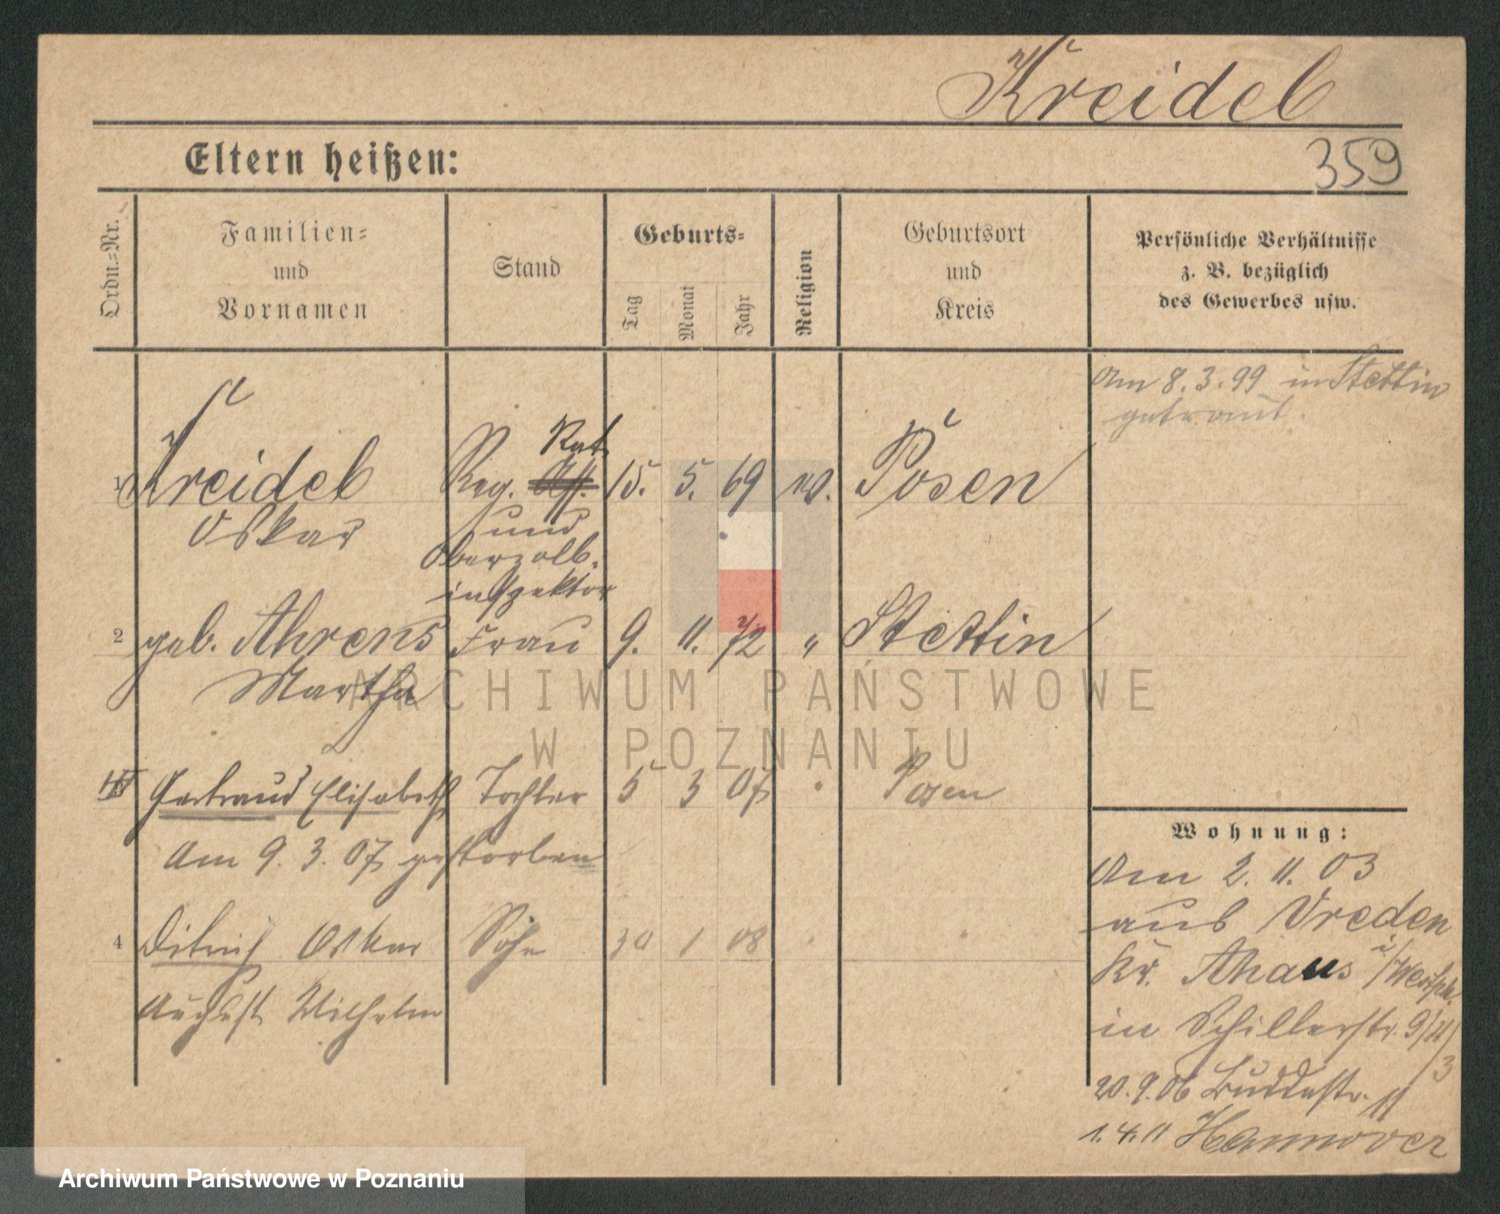 Kreidel
Eltern heißen:
359
Ordn.-Nr.
Familien-
und
Vornamen
Stand
Geburts-
Tag
Monat
Jahr
Religion
Geburtsort
und
Kreis
Persönliche Verhältnisse
z. B. bezüglich
des Gewerbes usw.
Am 8.3.99 in Stettin
getraut.
Rat
1 Kreidel Reg. Ass. 15. 5. 69 ev. Posen
Oskar und
Oberzoll-
inspektor
2 geb. Ahrens Frau 9. 11. 72 " Stettin
Martha
ARCHIWUM PAŃSTWOWE
W POZNANIU
Gertraud Elisabeth Tochter 5 3 07 " Posen
Am 9. 3. 07 gestorben
4 Oskar Sohn 30 1 08
August Wilhelm
Wohnung:
Am 2. 11. 03
aus Vreden
Kr. Ahaus i/Westph.
in Schillerstr. 9/11/3
20.9.06 Buddestr. 11
1.4.11 Hannover
Archiwum Państwowe w Poznaniu